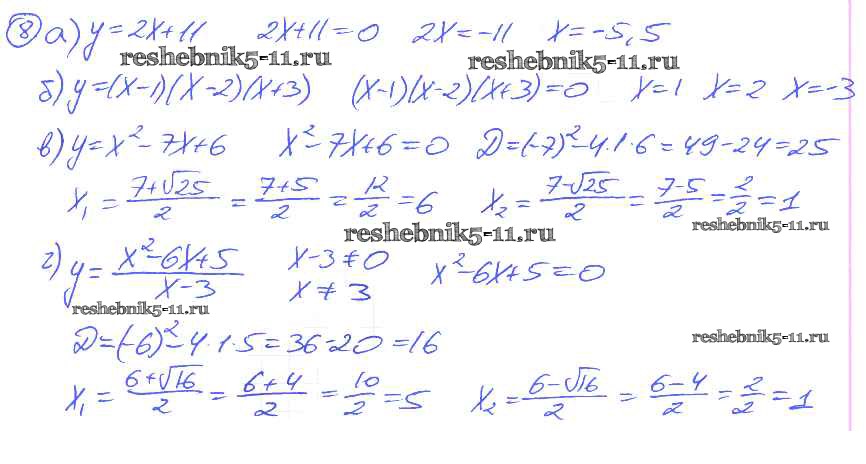 8 а) y=2x+11 2x+11=0 2x=-11 x=-5,5
reshebnik5-11.ru reshebnik5-11.ru
б) y=(x-1)(x-2)(x+3) (x-1)(x-2)(x+3)=0 x=1 x=2 x=-3
в) y=x²-7x+6 x²-7x+6=0 D=(-7)²-4·1·6=49-24=25
x₁=(7+√25)/2=(7+5)/2=12/2=6 x₂=(7-√25)/2=(7-5)/2=2/2=1
reshebnik5-11.ru reshebnik5-11.ru
г) y=(x²-6x+5)/(x-3) x-3≠0 x²-6x+5=0
x≠3
reshebnik5-11.ru
D=(-6)²-4·1·5=36-20=16
reshebnik5-11.ru
x₁=(6+√16)/2=(6+4)/2=10/2=5 x₂=(6-√16)/2=(6-4)/2=2/2=1